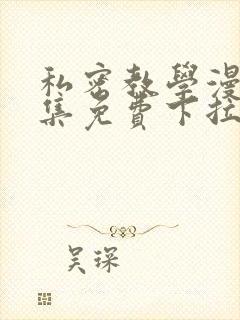 私密教學漫
集免費下拉
吴琛